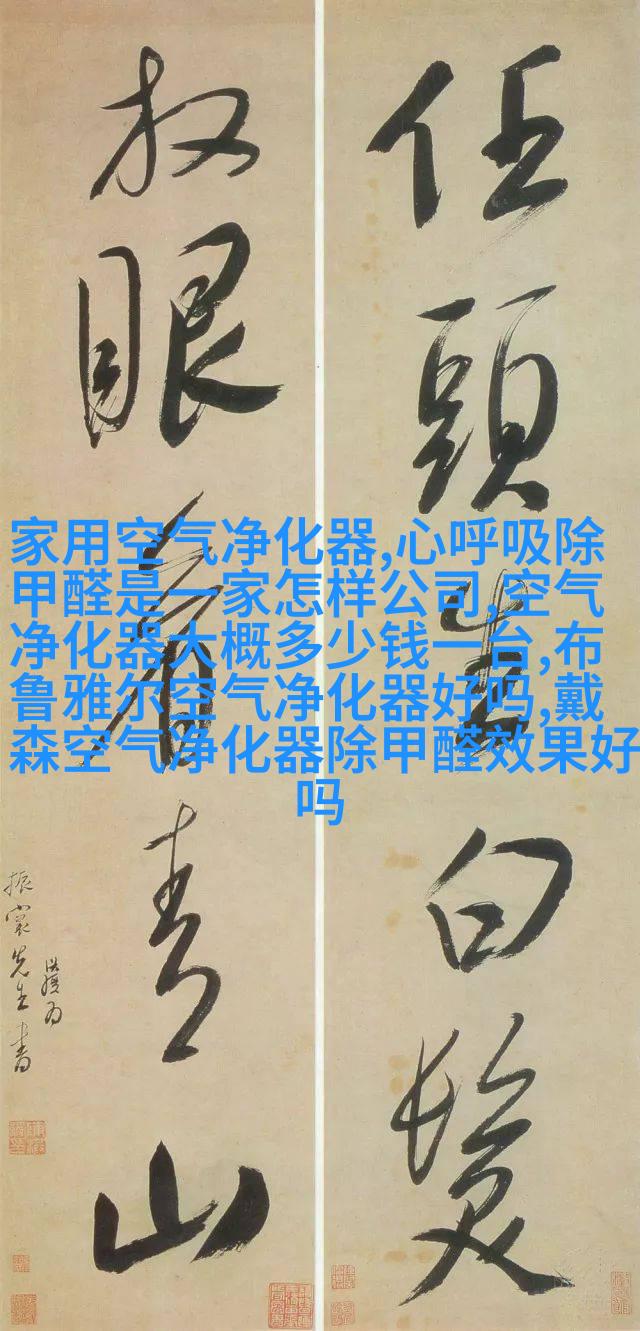 任頭生白髮
放眼看青山
先生書
家用空气净化器,心呼吸除
甲醛是一家怎样公司,空气
净化器大概多少钱一台,布
鲁雅尔空气净化器好吗,戴
森空气净化器除甲醛效果好
吗